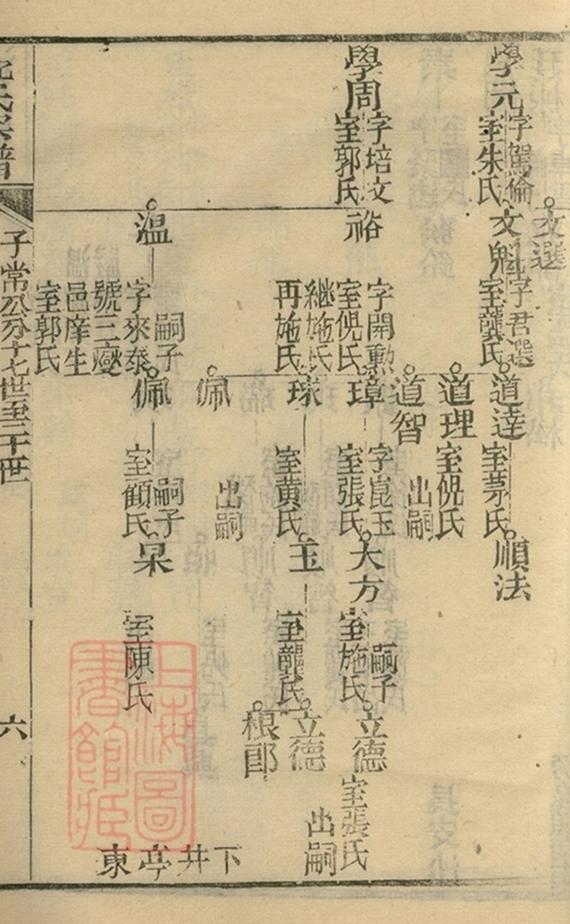 學元
字駕倫
室朱氏
文選
文魁
字君選
室龔氏
道達
室茅氏
順法
道理
室倪氏
道智
出嗣
學周
字培文
室郭氏
裕
字開勲
室倪氏
継施氏
再施氏
璋
字崑玉
室張氏
大方
嗣子
室施氏
立德
室張氏
球
室黄氏
玉
室龔氏
立德
出嗣
根郎
佩
出嗣
溫
嗣子
字來泰
號三燮
邑庠生
室郭氏
佩
嗣子
室顧氏
杲
室陳氏
下井亭東
氏宗譜
子常公分十七世至二十世
六
上海圖書館藏